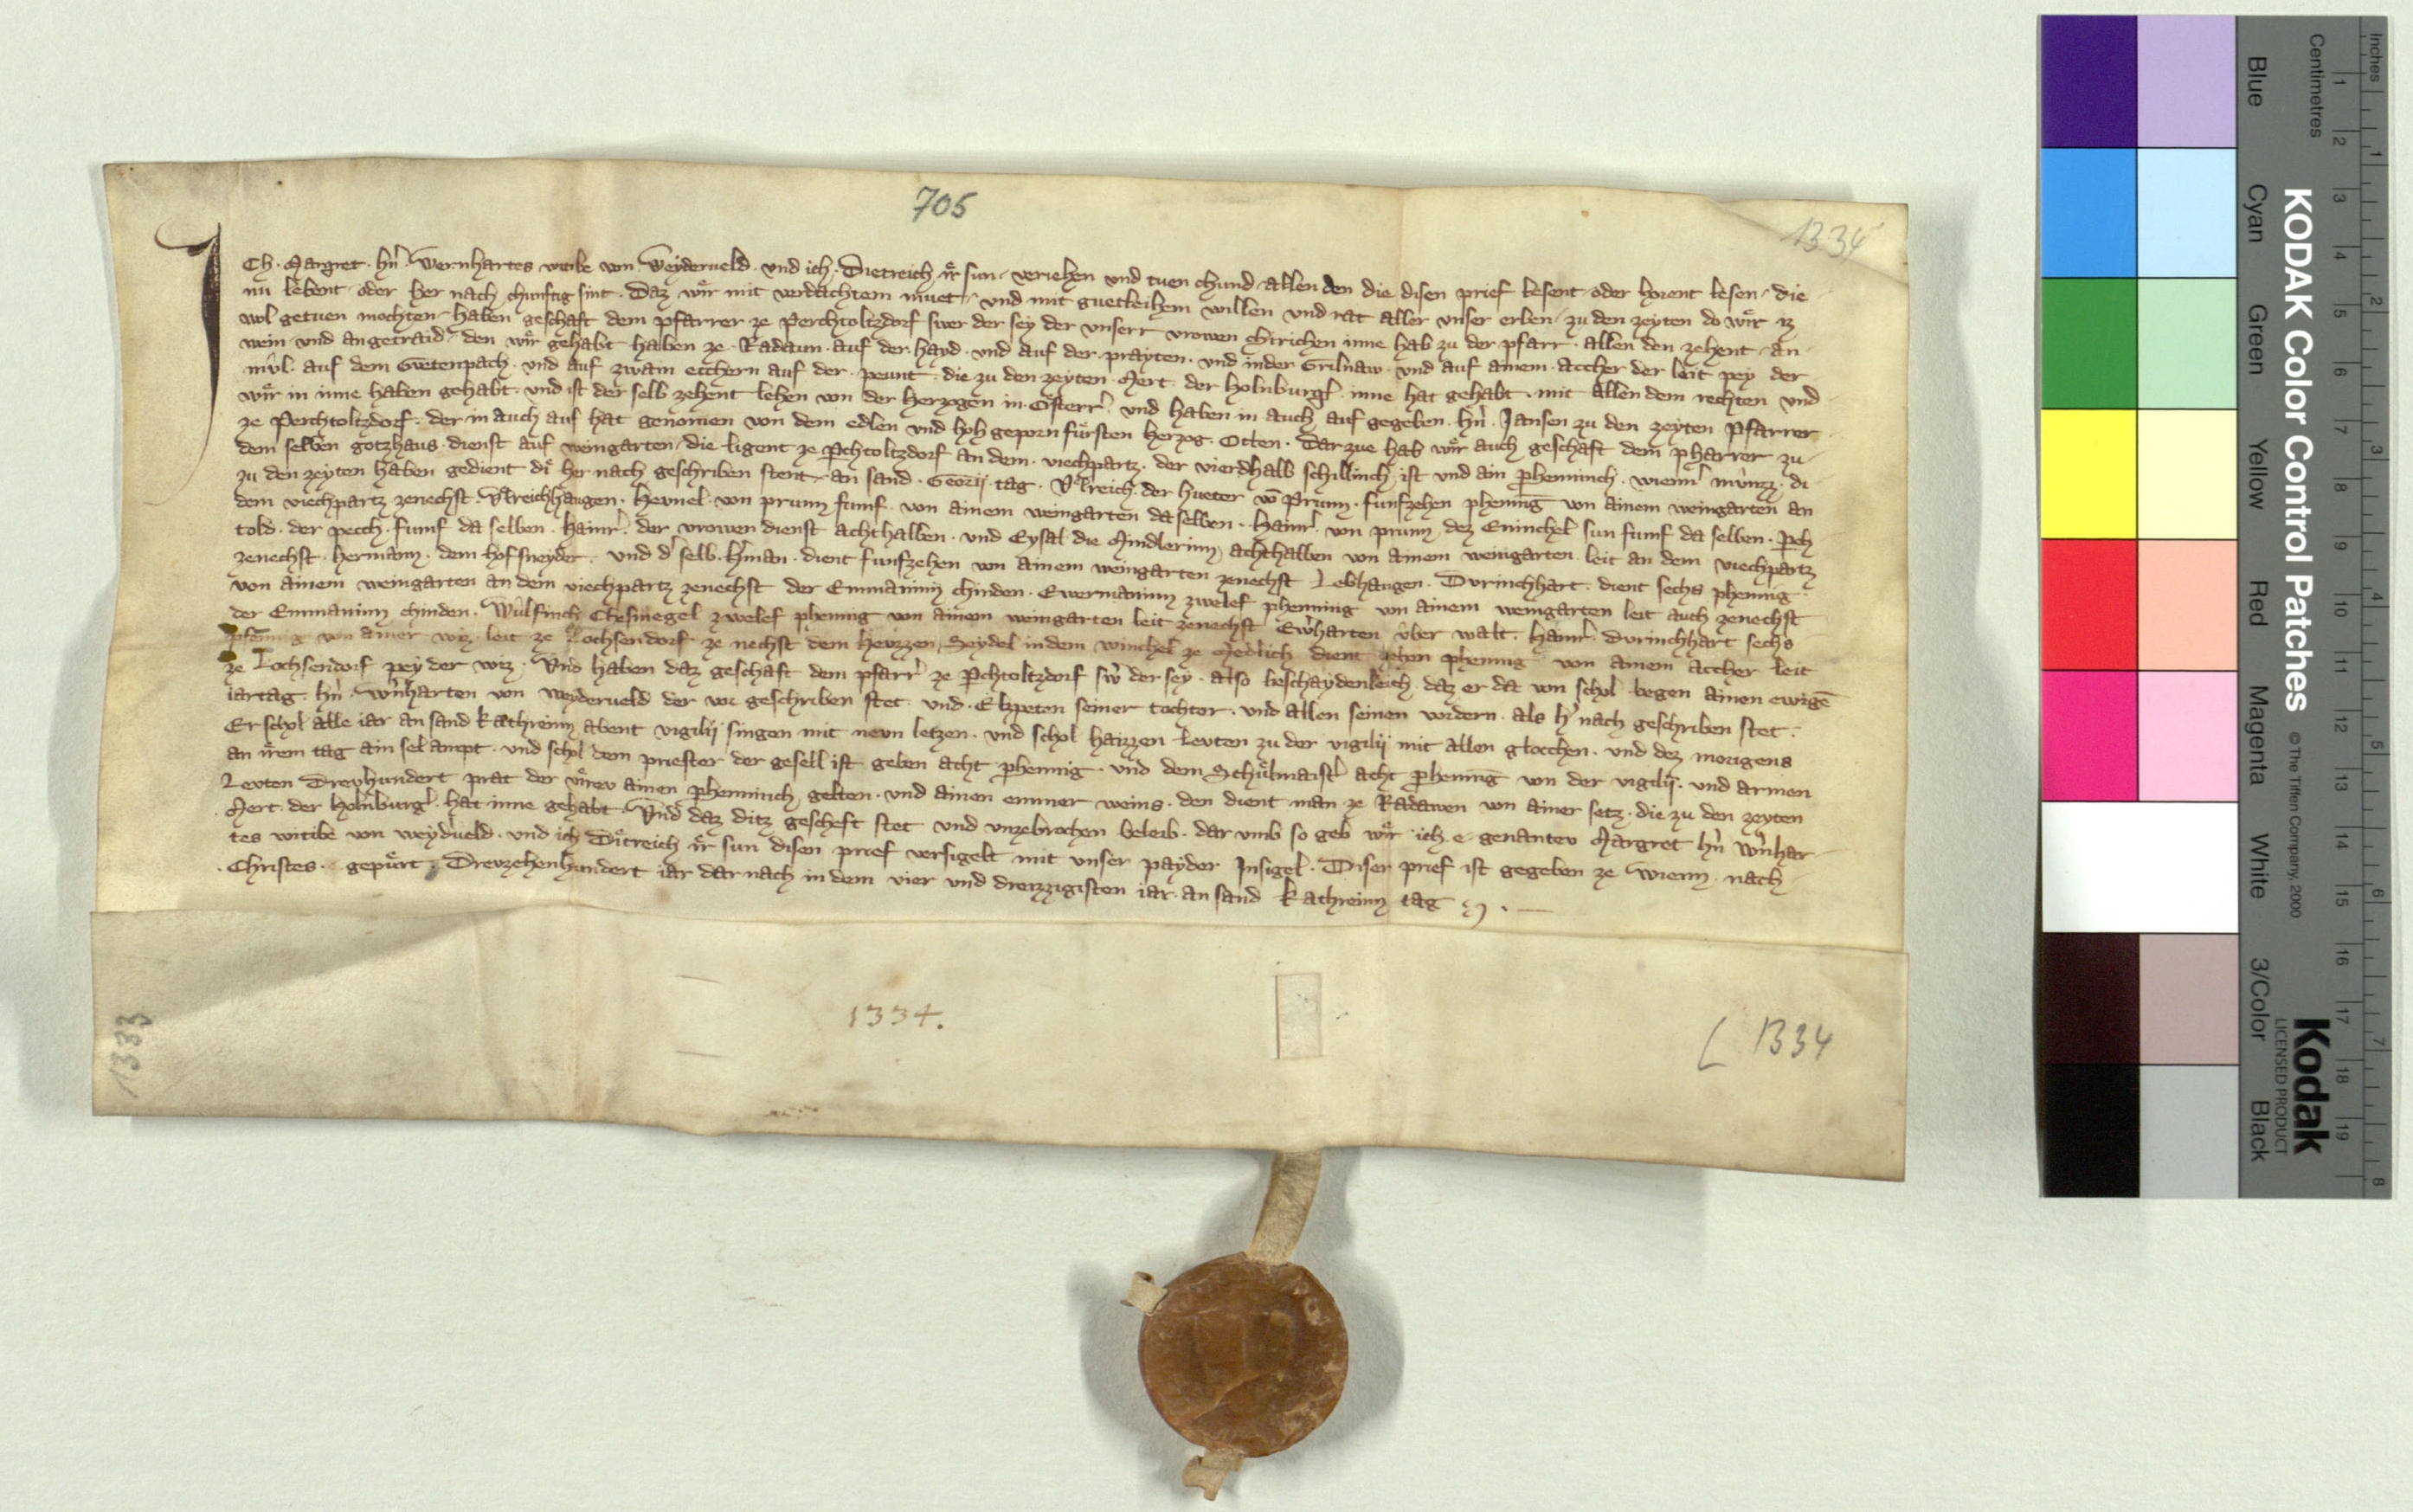 705
1334
ICh · Margret · hn̄ · Wernhartes witibe von Weyderveld · vnd ich · Dietreich ir̊ sun · veriehen vnd tuen chund allen den die disen prief lesent oder horent lesen · die
nu lebent oder her nach chunftig sint · Daz wir̊ mit verdachtem muet · vnd mit guetleihem willen vnd rat aller vnser erben · zu den zeyten do wir̊ iz
wol getuen mochten · haben geschaft dem pfarrer ze Perchtoltzdorf swer der sey der vnserr vrowen chirichen inne hab zu der pfarr · allen den zehent · an
wein vnd an getraid · den wir gehabt haben ze · Radaun · auf der · hayd · vnd auf der · prayten · vnd in der Grilnaw · vnd auf ainem · accher der leit pey der
mu̇l · auf dem Gretenpach · vnd auf zwain ecchern auf der · peunt · die zu den zeyten · Mert · der Holnburgͬ · inne hat gehabt · mit allen dem rechten vnd
wir̊ in inne haben gehabt · vnd ist der selb zehent lehen von der herzogen in · Osterrͬ · vnd haben in auch auf gegeben · hn̄ · Jansen zu den zeyten Pfarrer
ze Perchtoltzdorf · der in auch auf hat genomen von dem edlen vnd hoh geporn fursten herzog · Otten · Dar zue hab wir̊ auch geschaft dem pharrer zu
dem selben gotzhaus · dienst auf weingarten · die ligent ze Pchtoltzdorf an dem · viechpartz · der vierdhalb schillinch ist vnd ain phenninch · wiennͬ mu̇nzz · di
zu den zeyten haben gedient di̊ her nach geschriben stent · an sand · Georij · tag · Vͦlreich · der hueter vō Prunn · funfzehen phening von ainem weingarten an
dem viechpartz zenechst · Vlreichhaugen · Hevnel · von prunn fumf · von ainem weingarten da selben · Hainrͬ · von prunn · dez Eninchel sun fumf da selben · Pch
told · der pecch · fumf da selben · Hainrͬ · der vrowen dienst achthalben · vnd Eysal die Mindlerinn achthalben von ainem weingarten leit an dem viechpartz
zenechst · Hermann · dem hofsneyder · vnd dͬ selb · Hͬman · dient funfzehen von ainem weingarten zenechst Lebhaugen · Durinchhart · dient sechs phenning
von ainem weingarten an dem viechpartz zenechst der Enmaninn chinden · Ewermaninn zwelef phenning von ainem weingarten leit auch zenechst
der Enmaninn chinden · Wu̇lfinch Chesnegel zwelef phennig von ainem weingarten leit zenechst Ewͬharten u̇ber walt · Hainrͬ · Durinchhart sechs
pfēning von ainer wiz leit ze Lochsendorf ze nechst dem herzzen · Seydel in dem winchel ze Medlich dient zehen phennig von ainem accher leit
ze Lochsendorf pey der wiz · Vnd haben daz geschaft dem pfarrͬ ze Pchtoltzdorf swͬ der sey · also beschaydenleich · daz er da von schol begen ainen ewigē
iartag · hn̄ · Wn̄harten von weyderveld der vor geschriben stet · vnd · Elzpeten seiner tochter · vnd allen seinen vordern · als hͬ nach geschriben stet ·
Er schol alle iar an sand kathreinn abent vigilij singen mit nevn letzen · vnd schol haizzen levten zu der vigilij mit allen glocchen · vnd dez morigens
an ir̊em tag ain sel ampt · vnd schol dem priester der gesell ist geben acht phennig · vnd dem Schu̇lmaistͬ acht phenning von der vigilij · vnd armen
Levten Drevhundert prat der vir̊ev ainen phenninch gelten · vnd ainen emmer weins · den dient man ze Radawen von ainer setz · die zu den zeyten
Mert · der Holnburgͬ · hat inne gehabt · Vnd daz ditz gescheft stet vnd vnzebrochen beleib · dar vmb so geb wir̊ ich · e · genantev Margret hn̄ Wn̄har
tes witibe von weydͬveld · vnd ich Ditreich ir̊ sun disen prief versigelt mit vnser payder Insigel · Diser prief ist gegeben ze Wienn · nach
Christes · gepu̇rt · Drevzehenhundert iar dar nach in dem vier vnd dreizzigisten iar · an sand kathreinn tag
1333
1334.
1334
KODAK Color Control Patches
© The Tiffen Company, 2000
Kodak
LICENSED PRODUCT
Inches
Centimetres
1 2 3 4 5 6 7 8
1 2 3 4 5 6 7 8 9 10 11 12 13 14 15 16 17 18 19
Blue
Cyan
Green
Yellow
Red
Magenta
White
3/Color
Black